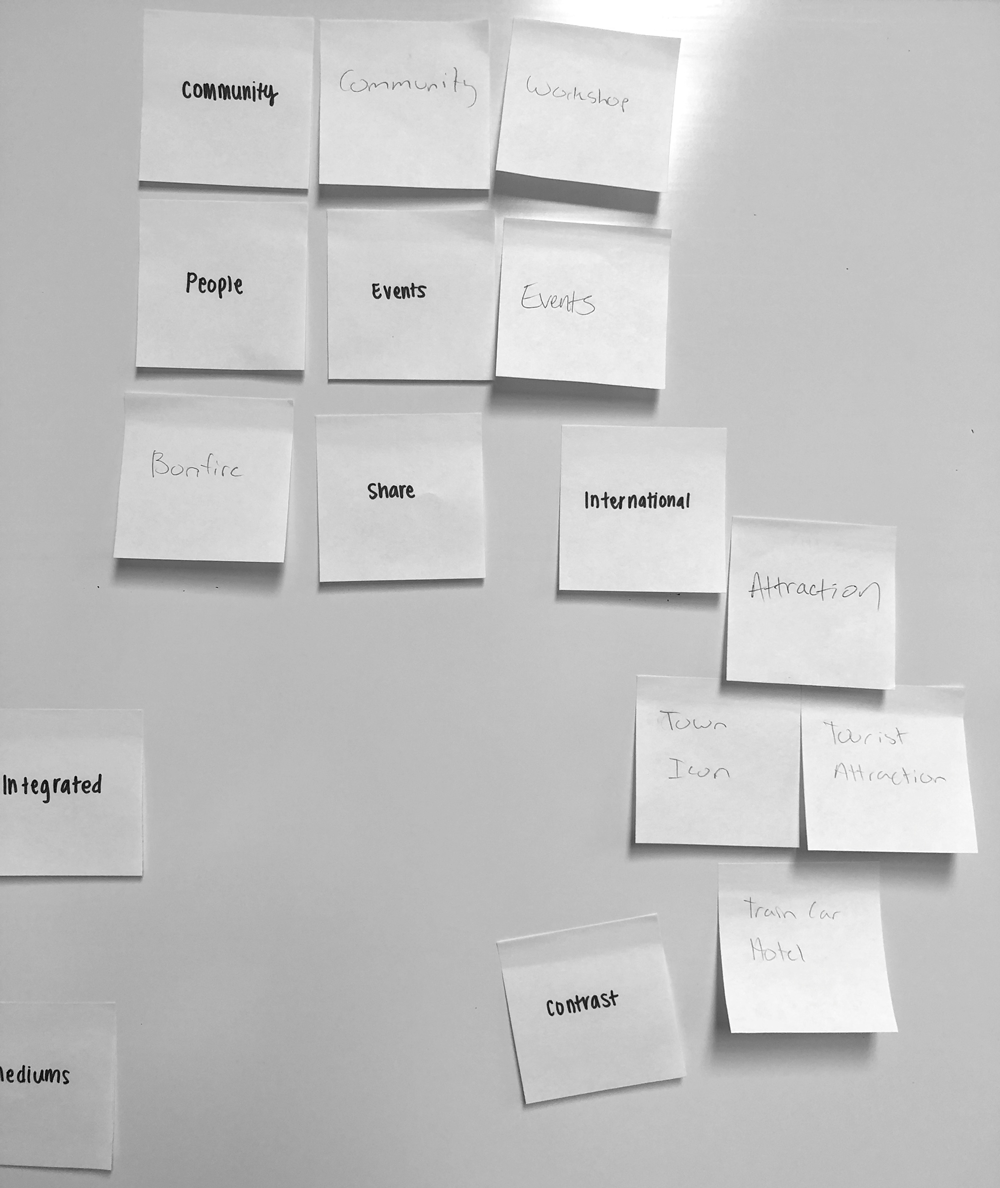 Community
Community
Workshop
People
Events
Events
Bonfire
Share
International
Attraction
Town
Icon
Tourist
Attraction
Integrated
Train Car
Hotel
Contrast
mediums